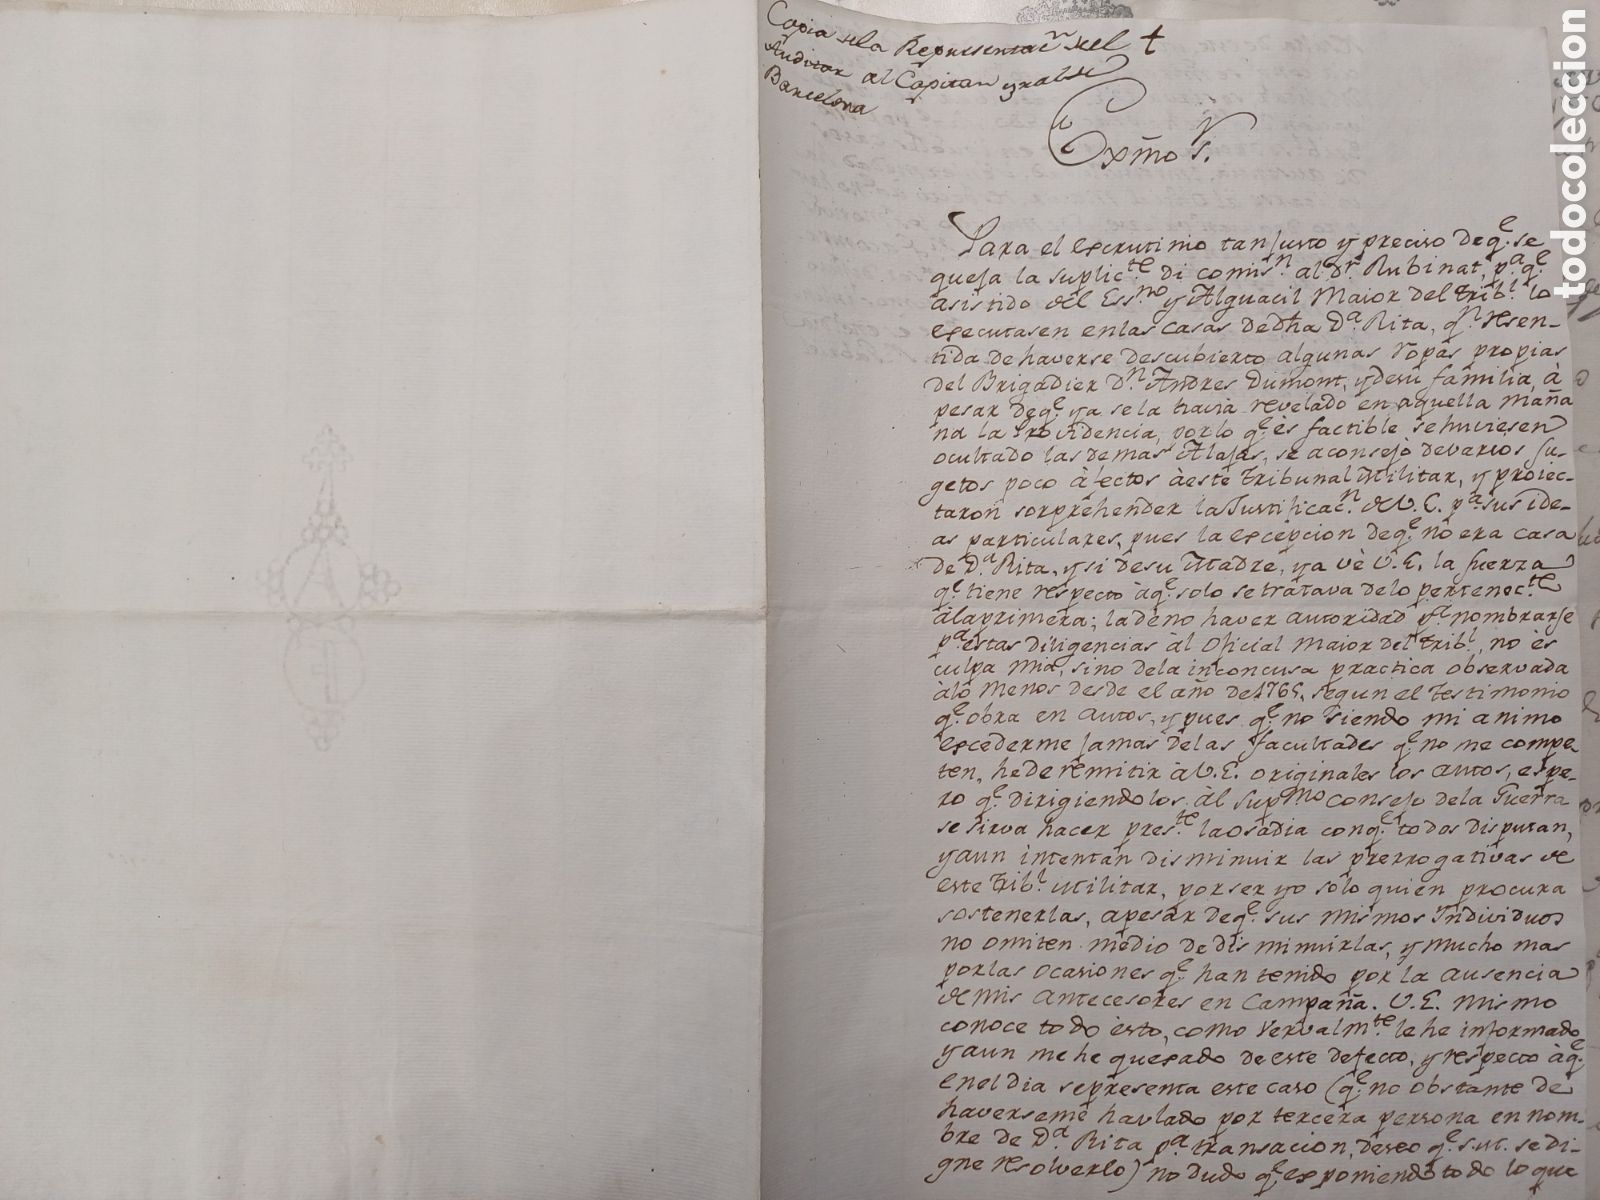 Copia de la Representacⁿ del †
Auditor al Capitan gral de
Barcelona
Exmo Sr.
Para el escrutinio tan justo y preciso de q.e se
queja la suplic.te di comisn. al Dr Rubinat, p.a q.e
asistido del Essno y Alguacil Maior del Tribl. lo
executasen en las casas de dha D.a Rita, q.n resen-
tida de haverse descubierto algunas ropas propias
del Brigadier Dn Andres Dumont, y de su familia, à
pesar de q.e ya se la havia revelado en aquella maña
na la Providencia, por lo q.e ès factible se huviesen
ocultado las demas Alajas, se aconsejò de varios Su-
getos poco àfectos à este Tribunal Militar, y proiec-
taron sorprehender la Justificacn. de V.E. p.a sus ide-
as particulares, pues la excepcion de q.e no era casa
de D.a Rita, y si de su Madre, ya vè V.E. la fuerza
q.e tiene respecto à q.e solo se tratava de lo pertenecte
à la primera; la de no haver autoridad p.a nombrarse
p.a estas diligencias àl Oficial Maior del Tribl, no ès
culpa mia, sino de la inconcusa practica observada
à lo menos desde el año de 1765, segun el testimonio
q.e obra en autos, y pues q.e no siendo mi animo
excederme jamas de las facultades q.e no me compe-
ten, he de remitir à V.E. originales los autos, espe-
ro q.e dirigiendolos àl Supmo Consejo de la Guerra
se sirva hacer pres.te la osadia con q.e todos disputan,
y aun intentan disminuir las prerrogativas de
este Tribl. Militar, por ser yo sòlo quien procura
sostenerlas, apesar de q.e sus mismos Individuos
no omiten medio de disminuirlas, y mucho mas
por las ocasiones q.e han tenido por la ausencia
de mis antecesores en Campaña. V.E. mismo
conoce todo èsto, como vervalmte. le he informado
y aun me he quexado de este defecto, y respecto à q.e
en el dia se presenta este caso (q.e no obstante de
haverseme havlado por tercera persona en nom-
bre de D.a Rita p.a transacion, deseo q.e S.M. se di-
gne resolverlo) no dudo q.e exponiendo todo lo que
todocoleccion